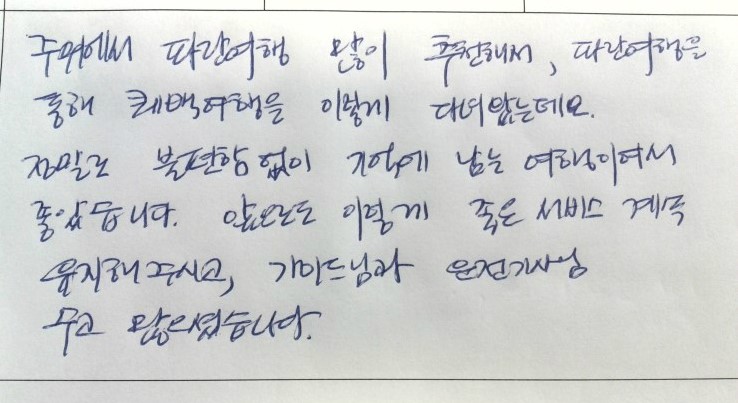 주위에서 파란여행 많이 추천해서, 파란여행을
통해 퀘백여행을 이렇게 다녀왔는데요.
정말로 불편함 없이 기억에 남는 여행이여서
좋았습니다. 앞으로도 이렇게 좋은 서비스 계속
유지해주시고, 가이드님과 운전기사님
수고 많으셨습니다.